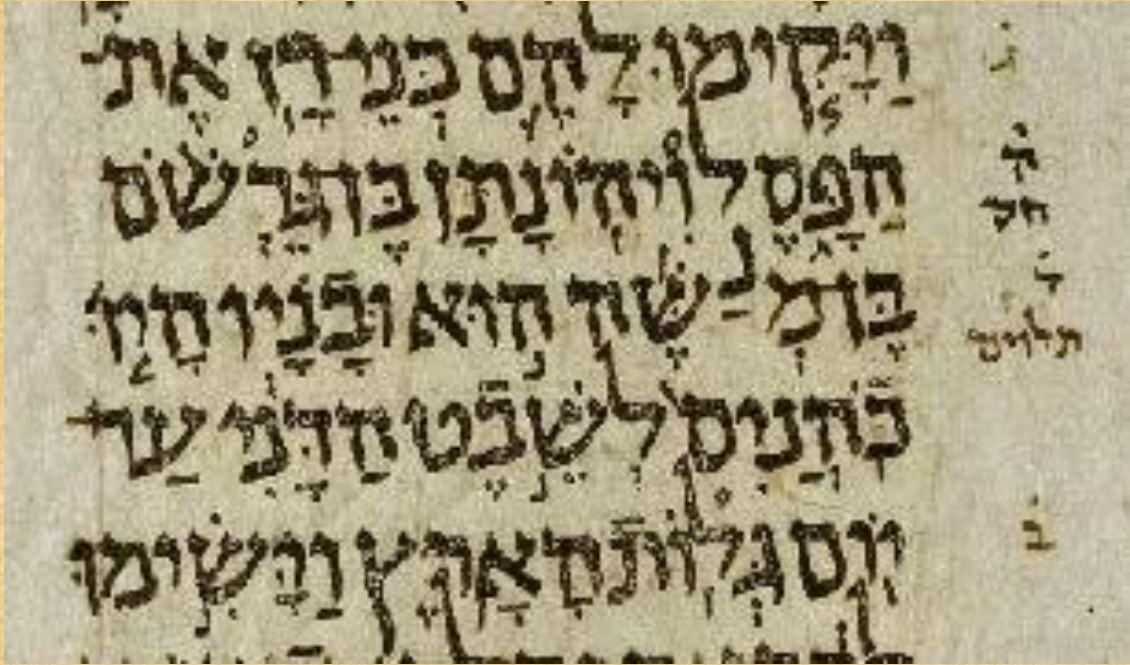 וַיָּקִימוּ לָהֶם בְּנֵי־דָן אֶת־
הַפָּסֶל וִיהוֹנָתָן בֶּן־גֵּרְשֹׁם
בֶּן־מְנַשֶּׁה הוּא וּבָנָיו הָיוּ
כֹהֲנִים לְשֵׁבֶט הַדָּנִי עַד־
יוֹם גְּלוֹת הָאָרֶץ וַיָּשִׂימוּ
ד
חס
ד
תלוים
ב